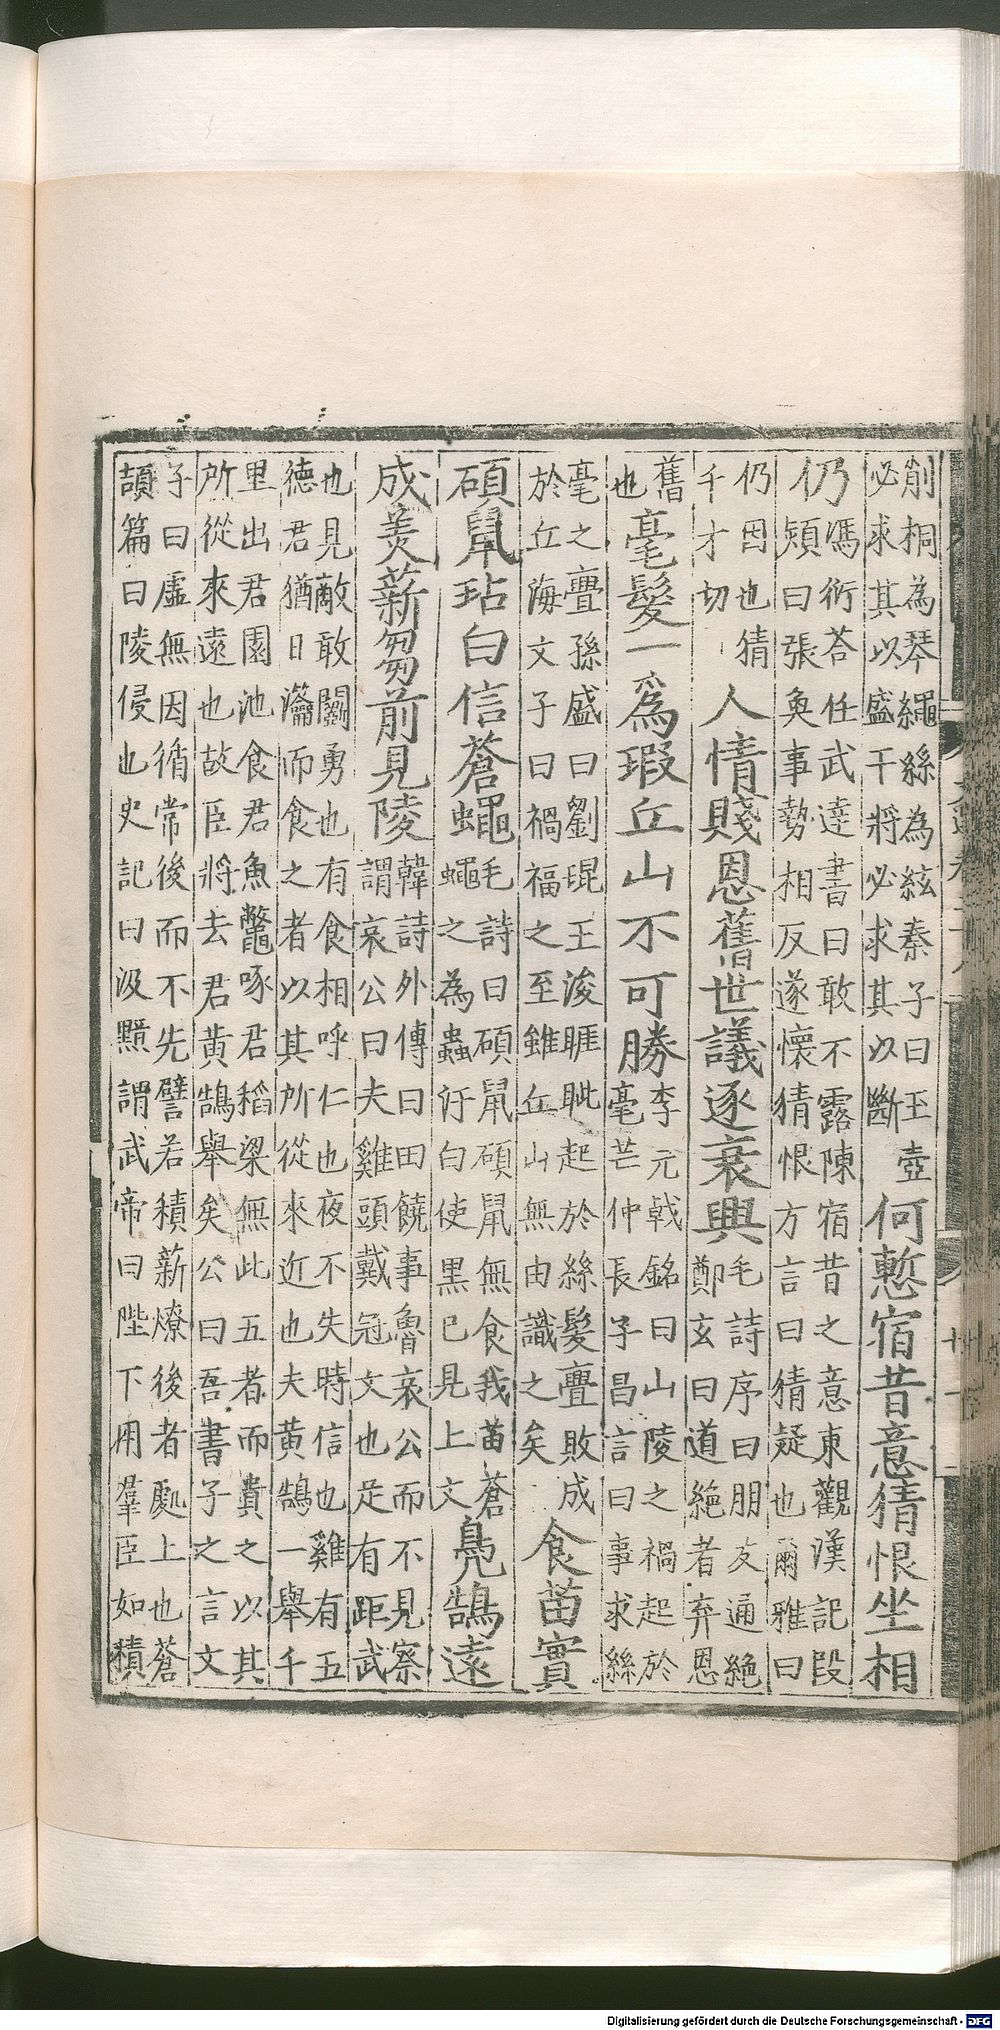 削桐為琴繩絲為絃秦子曰玉壺
必求其以盛干將必求其以斷
何慙宿昔意猜恨坐相
仍
馮衍荅任武達書曰敢不露陳宿昔之意東觀漢記段
熲曰張奐事勢相反遂懷猜恨方言曰猜疑也爾雅曰
仍因也猜
千才切
人情賤恩舊世議逐衰興
毛詩序曰朋友道絶
鄭玄曰道絶者弃恩
舊
也
毫髮一爲瑕丘山不可勝
李元戟銘曰山陵之禍起於
毫芒仲長子昌言曰事求絲
毫之舋孫盛曰劉琨王浚睚眦起於絲髮舋敗成
於丘海文子曰禍福之至雖丘山無由識之矣
食苗實
碩鼠玷白信蒼蠅
毛詩曰碩鼠碩鼠無食我苗蒼
蠅之為蟲汙白使黑已見上文
鳧鵠遠
成美薪芻前見陵
韓詩外傳曰田饒事魯哀公而不見察
謂哀公曰夫雞頭戴冠文也足有距武
也見敵敢鬭勇也有食相呼仁也夜不失時信也雞有五
德君猶日瀹而食之者以其所從來近也夫黃鵠一舉千
里出君園池食君魚鼈啄君稻梁無此五者而貴之以其
所從來遠也故臣將去君黃鵠舉矣公曰吾書子之言文
子曰虛無因循常後而不先譬若積薪燎後者處上也蒼
頡篇曰陵侵也史記曰汲黯謂武帝曰陛下用羣臣如積
Digitalisierung gefördert durch die Deutsche Forschungsgemeinschaft - DFG